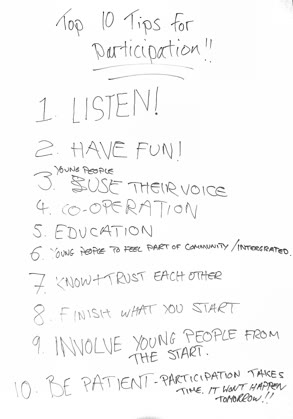 Top 10 Tips for
Participation!!
1. LISTEN!
2. HAVE FUN!
YOUNG PEOPLE
3. USE THEIR VOICE
4. CO-OPERATION
5. EDUCATION
6. YOUNG PEOPLE TO FEEL PART OF COMMUNITY / INTERGRATED.
7 KNOW + TRUST EACH OTHER
8. FINISH WHAT YOU START
9. INVOLVE YOUNG PEOPLE FROM
THE START.
10. BE PATIENT - PARTICIPATION TAKES
TIME. IT WON'T HAPPEN
TOMORROW!!